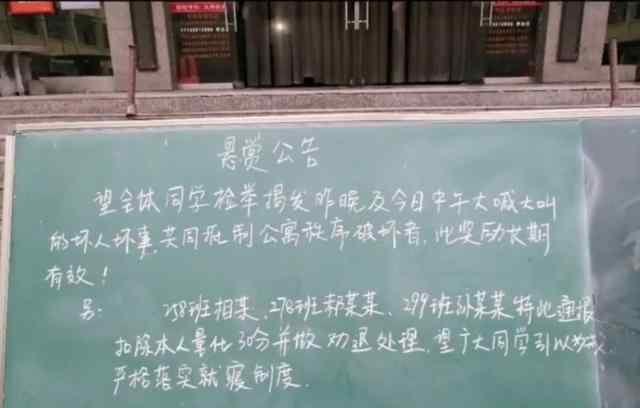 悬赏公告
望全体同学检举揭发昨晚及今日中午大喊大叫
的坏人坏事,共同抵制公寓秩序破坏者,此奖励长期
有效!
另: 258班相某、278班郝某某、299班孙某某特此通报
扣除本人量化30分并做劝退处理,望广大同学引以为戒
严格落实就寝制度.